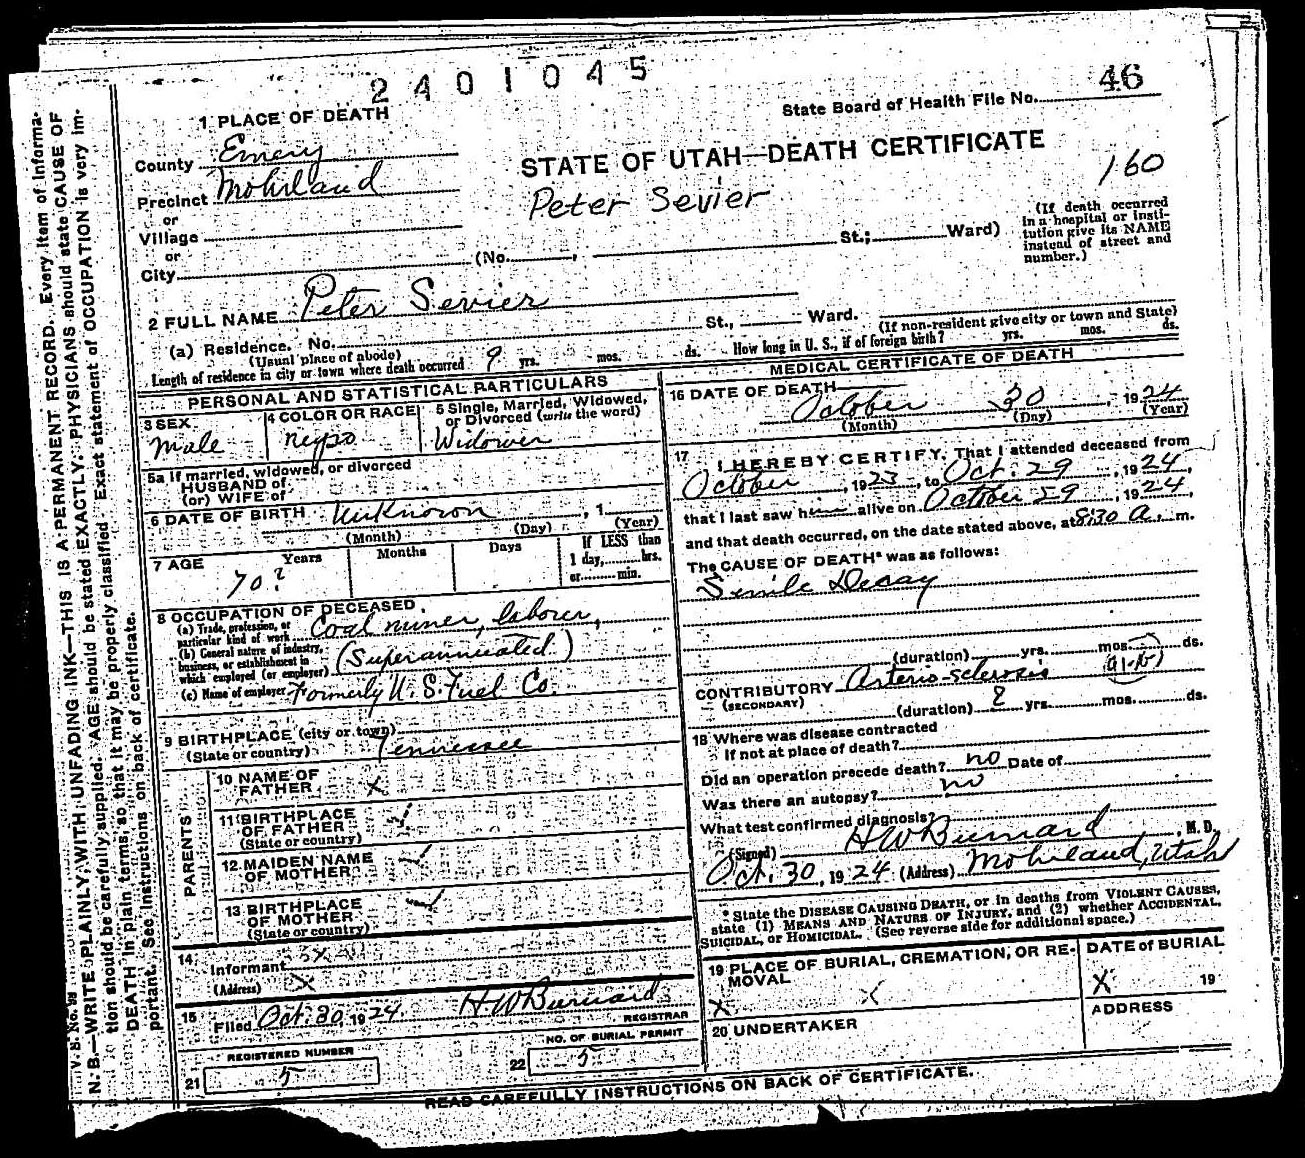 2401045
State Board of Health File No. 46
1 PLACE OF DEATH
County Emery
STATE OF UTAH—DEATH CERTIFICATE
160
Precinct Mohrland
Peter Sevier
or
Village
or
City (No. , St.; Ward)
(If death occurred
in a hospital or insti-
tution give its NAME
instead of street and
number.)
2 FULL NAME Peter Sevier
(a) Residence. No. St., Ward.
(Usual place of abode)
(If non-resident give city or town and State)
Length of residence in city or town where death occurred 9 yrs. mos. ds. How long in U. S., if of foreign birth? yrs. mos. ds.
PERSONAL AND STATISTICAL PARTICULARS
3 SEX
Male
4 COLOR OR RACE
Negro
5 Single, Married, Widowed,
or Divorced (write the word)
Widower
5a If married, widowed, or divorced
HUSBAND of
(or) WIFE of
6 DATE OF BIRTH Unknown , 1
(Month) (Day) (Year)
7 AGE Years Months Days
70?
If LESS than
1 day, hrs.
or min.
8 OCCUPATION OF DECEASED
(a) Trade, profession, or
particular kind of work Coal miner, laborer,
(b) General nature of industry,
business, or establishment in
which employed (or employer) (Superannuated)
(c) Name of employer Formerly U. S. Fuel Co.
9 BIRTHPLACE (city or town)
(State or country) Tennessee
PARENTS
10 NAME OF
FATHER X
11 BIRTHPLACE
OF FATHER
(State or country)
12 MAIDEN NAME
OF MOTHER
13 BIRTHPLACE
OF MOTHER
(State or country)
14
Informant X
(Address) X
15
Filed Oct. 30, 1924 H. W. Burnard
REGISTRAR
REGISTERED NUMBER
21 5
NO. OF BURIAL PERMIT
22 5
MEDICAL CERTIFICATE OF DEATH
16 DATE OF DEATH
October 30, 1924
(Month) (Day) (Year)
17 I HEREBY CERTIFY, That I attended deceased from
October , 1923, to Oct. 29 , 1924,
that I last saw him alive on October 29 , 1924,
and that death occurred, on the date stated above, at 8:30 A. m.
The CAUSE OF DEATH* was as follows:
Senile Decay
(duration) yrs. mos. ds.
CONTRIBUTORY Arterio-sclerosis
(SECONDARY)
(duration) ? yrs. mos. ds.
18 Where was disease contracted
if not at place of death?
Did an operation precede death? no Date of
Was there an autopsy? no
What test confirmed diagnosis?
(Signed) H W Burnard , M. D.
Oct. 30, 1924 (Address) Mohrland, Utah
* State the DISEASE CAUSING DEATH, or in deaths from VIOLENT CAUSES,
state (1) MEANS AND NATURE OF INJURY, and (2) whether ACCIDENTAL,
SUICIDAL, or HOMICIDAL. (See reverse side for additional space.)
19 PLACE OF BURIAL, CREMATION, OR RE-
MOVAL
X X
DATE of BURIAL
X 19
20 UNDERTAKER
ADDRESS
READ CAREFULLY INSTRUCTIONS ON BACK OF CERTIFICATE.
V. S. No. 99
N. B.—WRITE PLAINLY, WITH UNFADING INK—THIS IS A PERMANENT RECORD. Every item of informa-
tion should be carefully supplied. AGE should be stated EXACTLY. PHYSICIANS should state CAUSE OF
DEATH in plain terms, so that it may be properly classified. Exact statement of OCCUPATION is very im-
portant. See instructions on back of certificate.